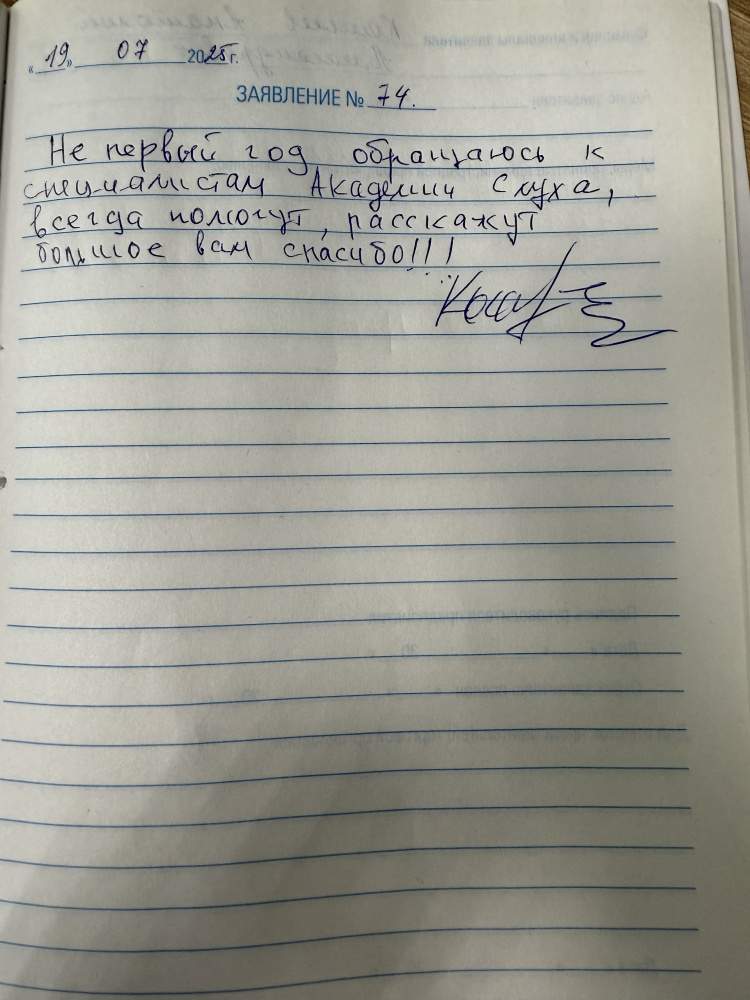 «19» 07 2025 г.
ЗАЯВЛЕНИЕ № 74.
Не первый год обращаюсь к
специалистам Академии Слуха,
всегда помогут, расскажут
большое вам спасибо!!!